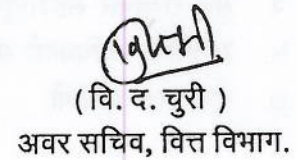 ( वि. द. चुरी )
अवर सचिव, वित्त विभाग.